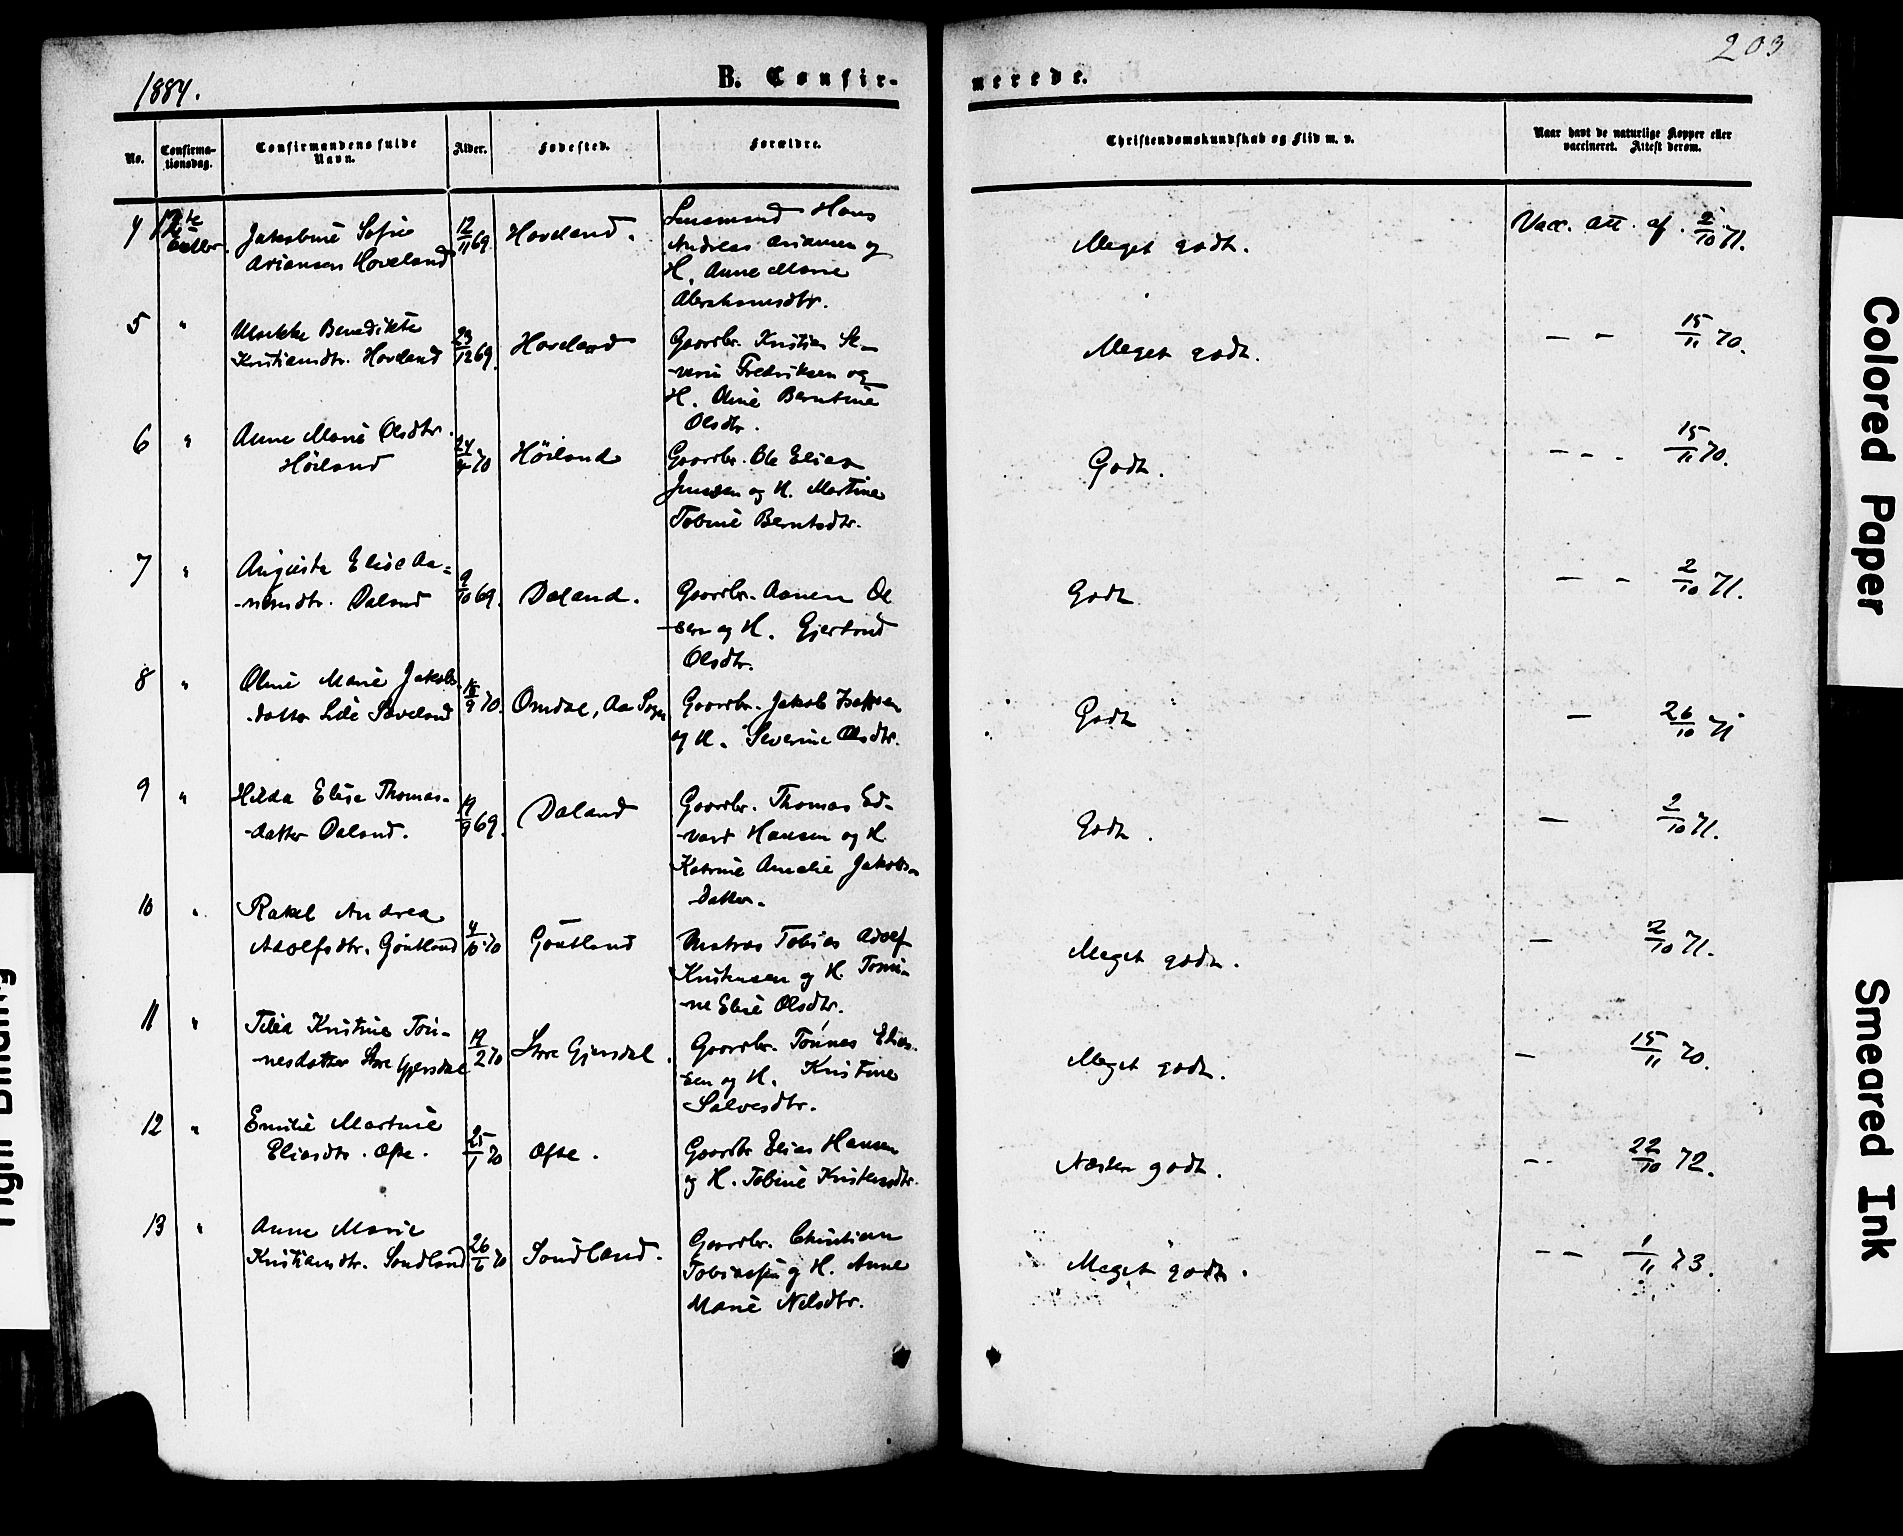 1884.
B. Confir-
merede.
203
No.
Confirma-
tionsdag.
Confirmandens fulde
Navn.
Alder.
Fødested.
Forældre.
Christendomskundskab og Flid m. v.
Naar havt de naturlige Kopper eller
vaccineret. Attest derom.
4
12te
Octbr.
Jakobine Sofie
Ariansen Hoveland
12/11 69.
Hoveland.
Hans
Andreas Ariansen og
H. Anne Marie
Abrahamsdtr.
Meget godt.
Vacc. att. af. 2/10 71.
5 "
Ulrikke Benedikte
Kristiansdtr. Hoveland
23/12 69.
Hoveland
Gaardbr. Kristian Se-
verin Fredriksen og
H. Oline Berntine
Olsdtr.
Meget godt.
- - 15/11 70.
6 "
Anne Marie Olsdtr.
Höiland
24/4 70
Höiland
Gaardbr. Ole Elias
Jensen og H. Martine
Tobine Berntsdtr.
Godt.
- - - 15/11 70.
7 "
Augusta Elise Aa-
nensdtr. Daland
9/10 69.
Daland.
Gaardbr. Aanen Ol
-sen og H. Gjertrud
Olsdtr.
Godt
- - 2/10 71.
8 "
Oline Marie Jakobs
datter Lille Søveland
9 70.
Omdal, Aa Sogn
Gaardbr. Jakob
og H. Severine Olsdtr.
Godt
- 26/10 71
9 "
Hilda Elise Thomas-
-datter Daland.
19/9 69.
Daland
Gaardbr. Thomas Ed-
-vard Hansen og H
Katrine Amalie Jakobs-
datter.
Godt.
- 2/10 71.
10 "
Rakel Andrea
Adolfsdtr. Gøutland
4/10 70
Gøutland
Matros Tobias Adolf
Kristensen og H. Tomi-
ne Elise Olsdtr.
Meget godt.
- 2/10 71.
11 "
Tilia Kristine Tøn-
nesdatter Store Gjersdal
19/2 70
Store Gjersdal.
Gaardbr. Tønnes Elias-
sen og H. Kristine
Salvesdtr.
Meget godt.
- 15/11 70.
12 "
Emilie Martine
Eliasdtr. Ofte.
25/1 70
Ofte.
Gaardbr Elias Hansen
og H. Tobine Kristensdtr.
Næsten godt.
- - 22/10 72.
13 "
Anne Marie
Kristiansdtr. Sundland
26/6 70
Sundland.
Gaardbr. Christian
Tobiassen og H. Anne
Marie Nilsdtr.
Meget godt.
- - 1/11 73.
Colored Paper
Smeared Ink
Tight Binding